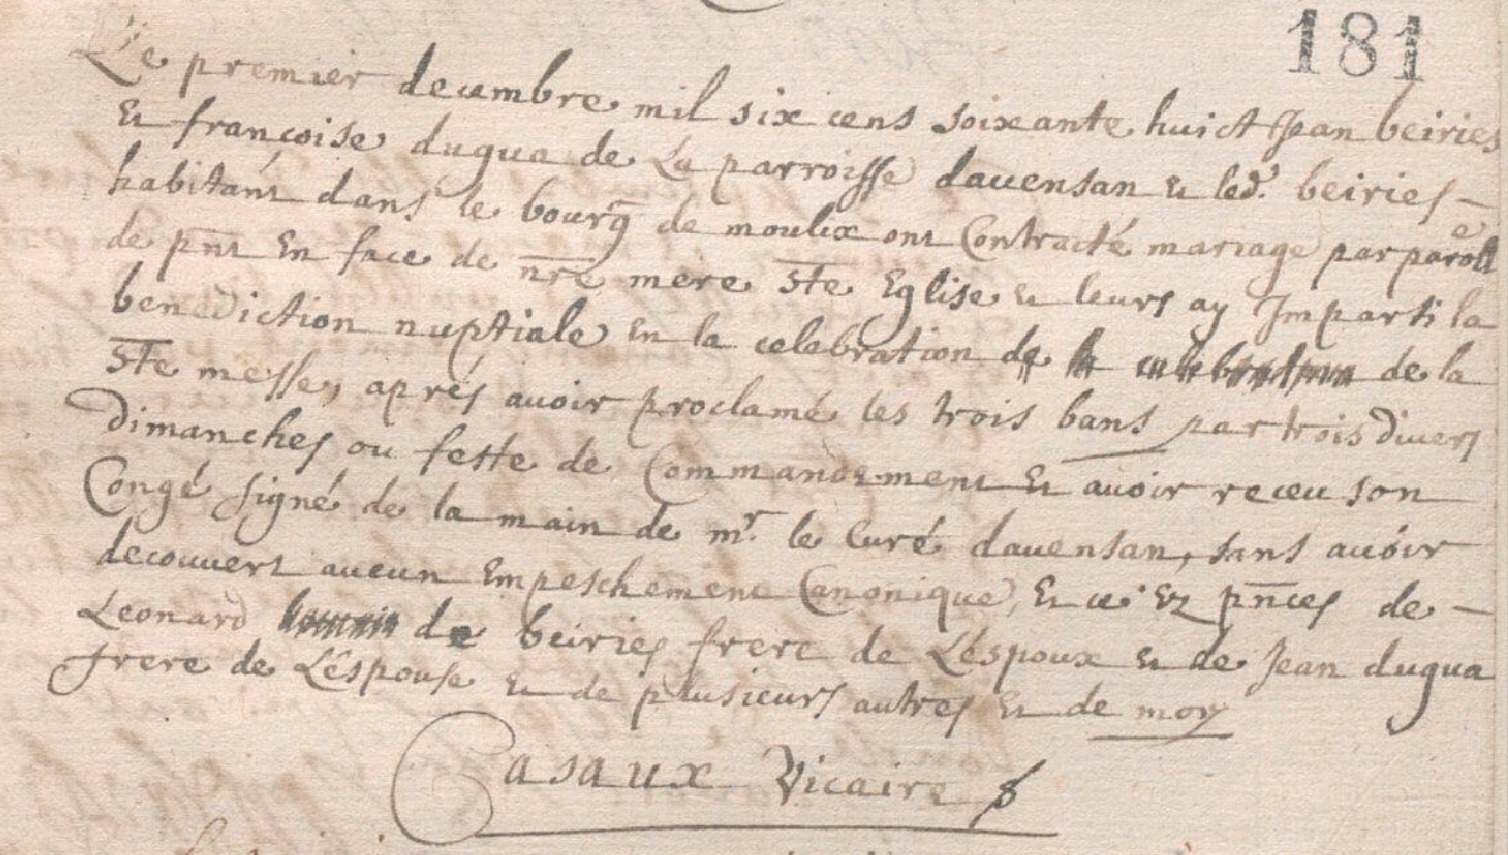 181
Le premier decembre mil six cens soixante huict Jean beiries
Et françoise dugua de La parroisse dauensan et led.t beiries –
habitant dans le bourg de moulix ont Contracté mariage par parolle
de pñt En face de nr̃e mere Ste Eglise et leurs ay Imparti la
benediction nuptiale en la celebration de la celebration de la
Ste messe, aprés auoir proclamé les trois bans par trois diuers
dimanches ou feste de Commandement Et auoir receu son
Congé signé de la main de mr. le Curé dauensan, sans auoir
decouuert aucun Empeschement Canonique, Et ce Ez pñces de –
Leonard de beiries frere de L'éspoux et de Jean dugua
frere de L'éspouse et de plusieurs autres Et de moy
Casaux Vicaire